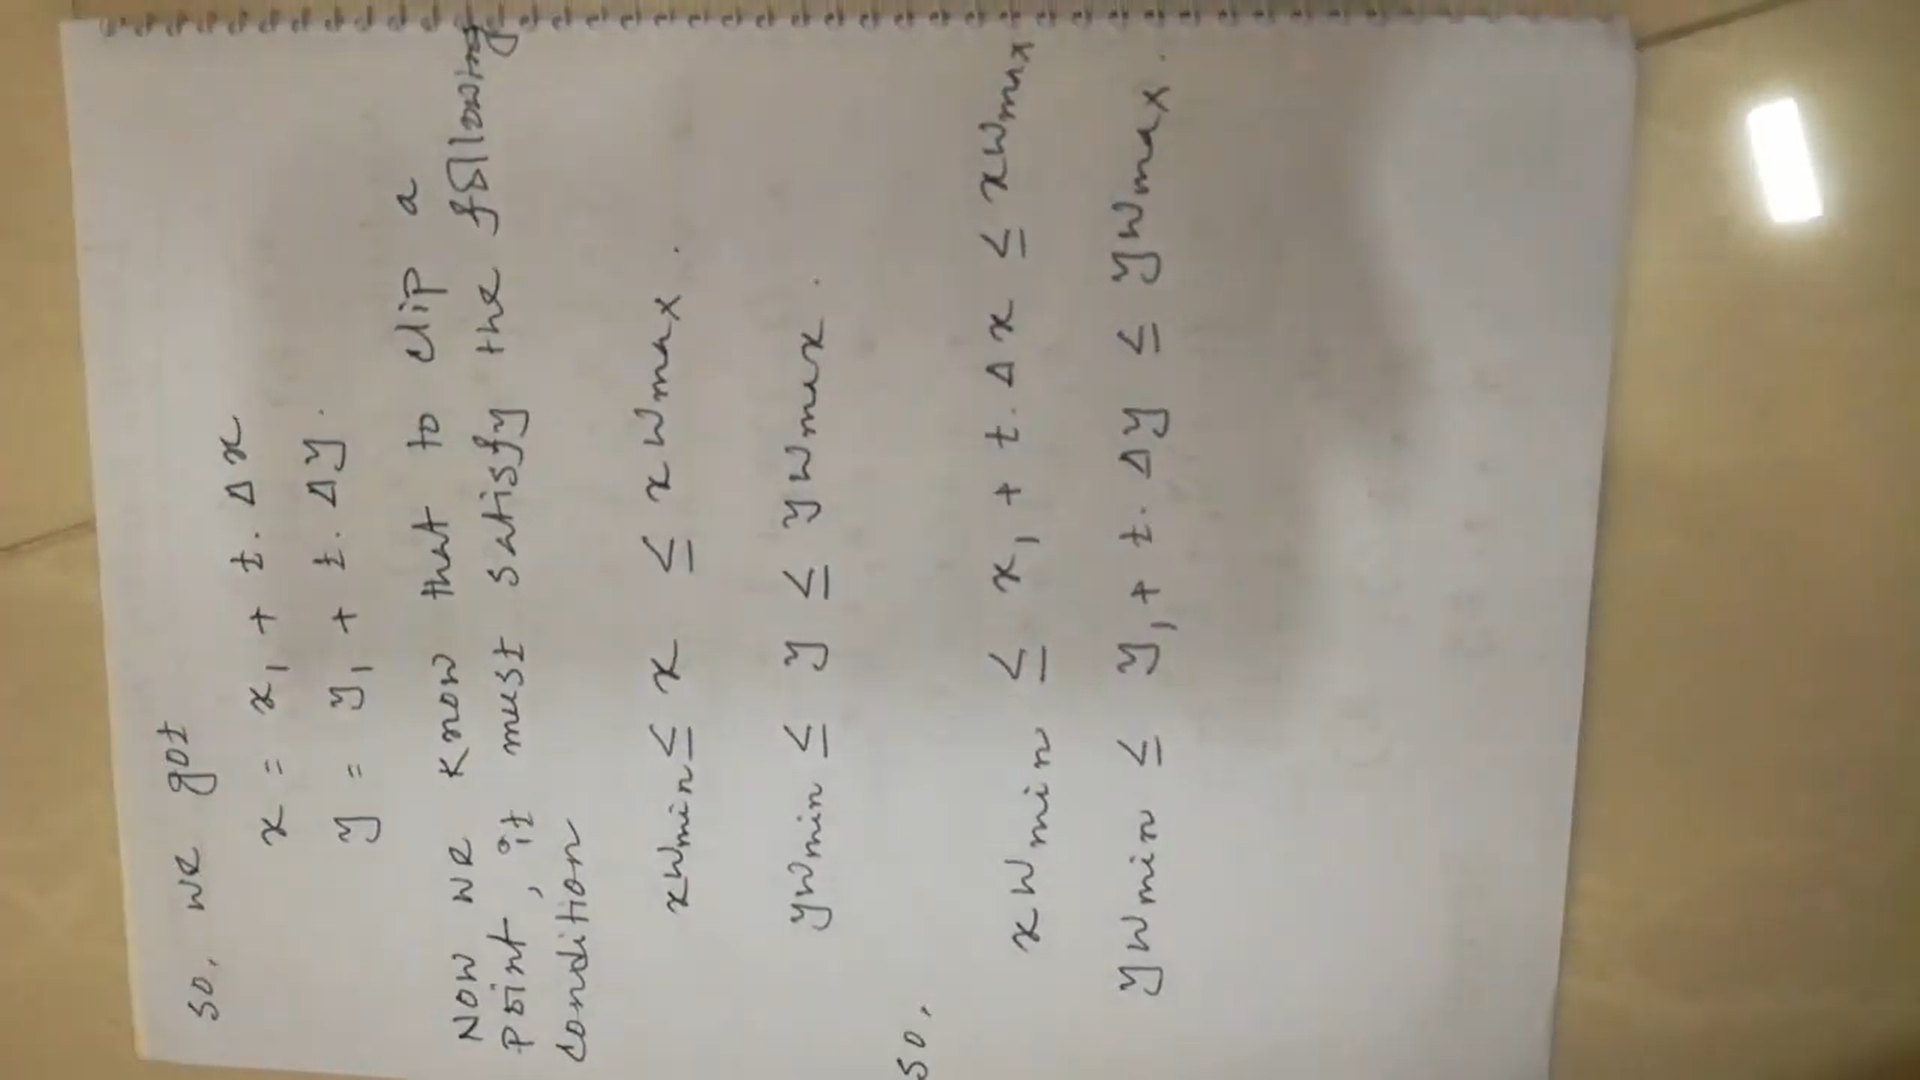 so, we got
x = x₁ + t. Δx
y = y₁ + t. Δy.
Now we know that to clip a
point, it must satisfy the following
condition
xwmin ≤ x ≤ xwmax.
ywmin ≤ y ≤ ywmax.
so,
xwmin ≤ x₁ + t. Δx ≤ xwmax
ywmin ≤ y₁ + t. Δy ≤ ywmax.